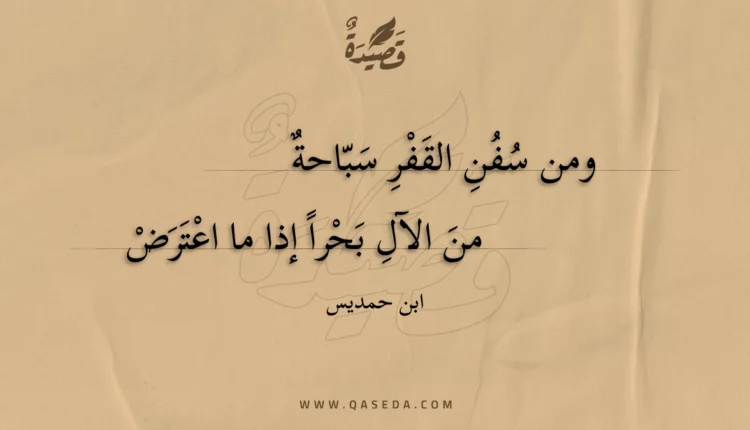 قَصِيْدَةٌ
ومن سُفُنِ القَفْرِ سَبّاحةٌ
منَ الآلِ بَحْراً إذا ما اعْتَرَضْ
ابن حمديس
WWW.QASEDA.COM